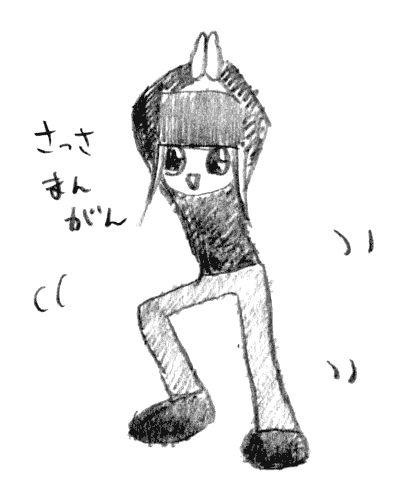 さっさ
まん
がん